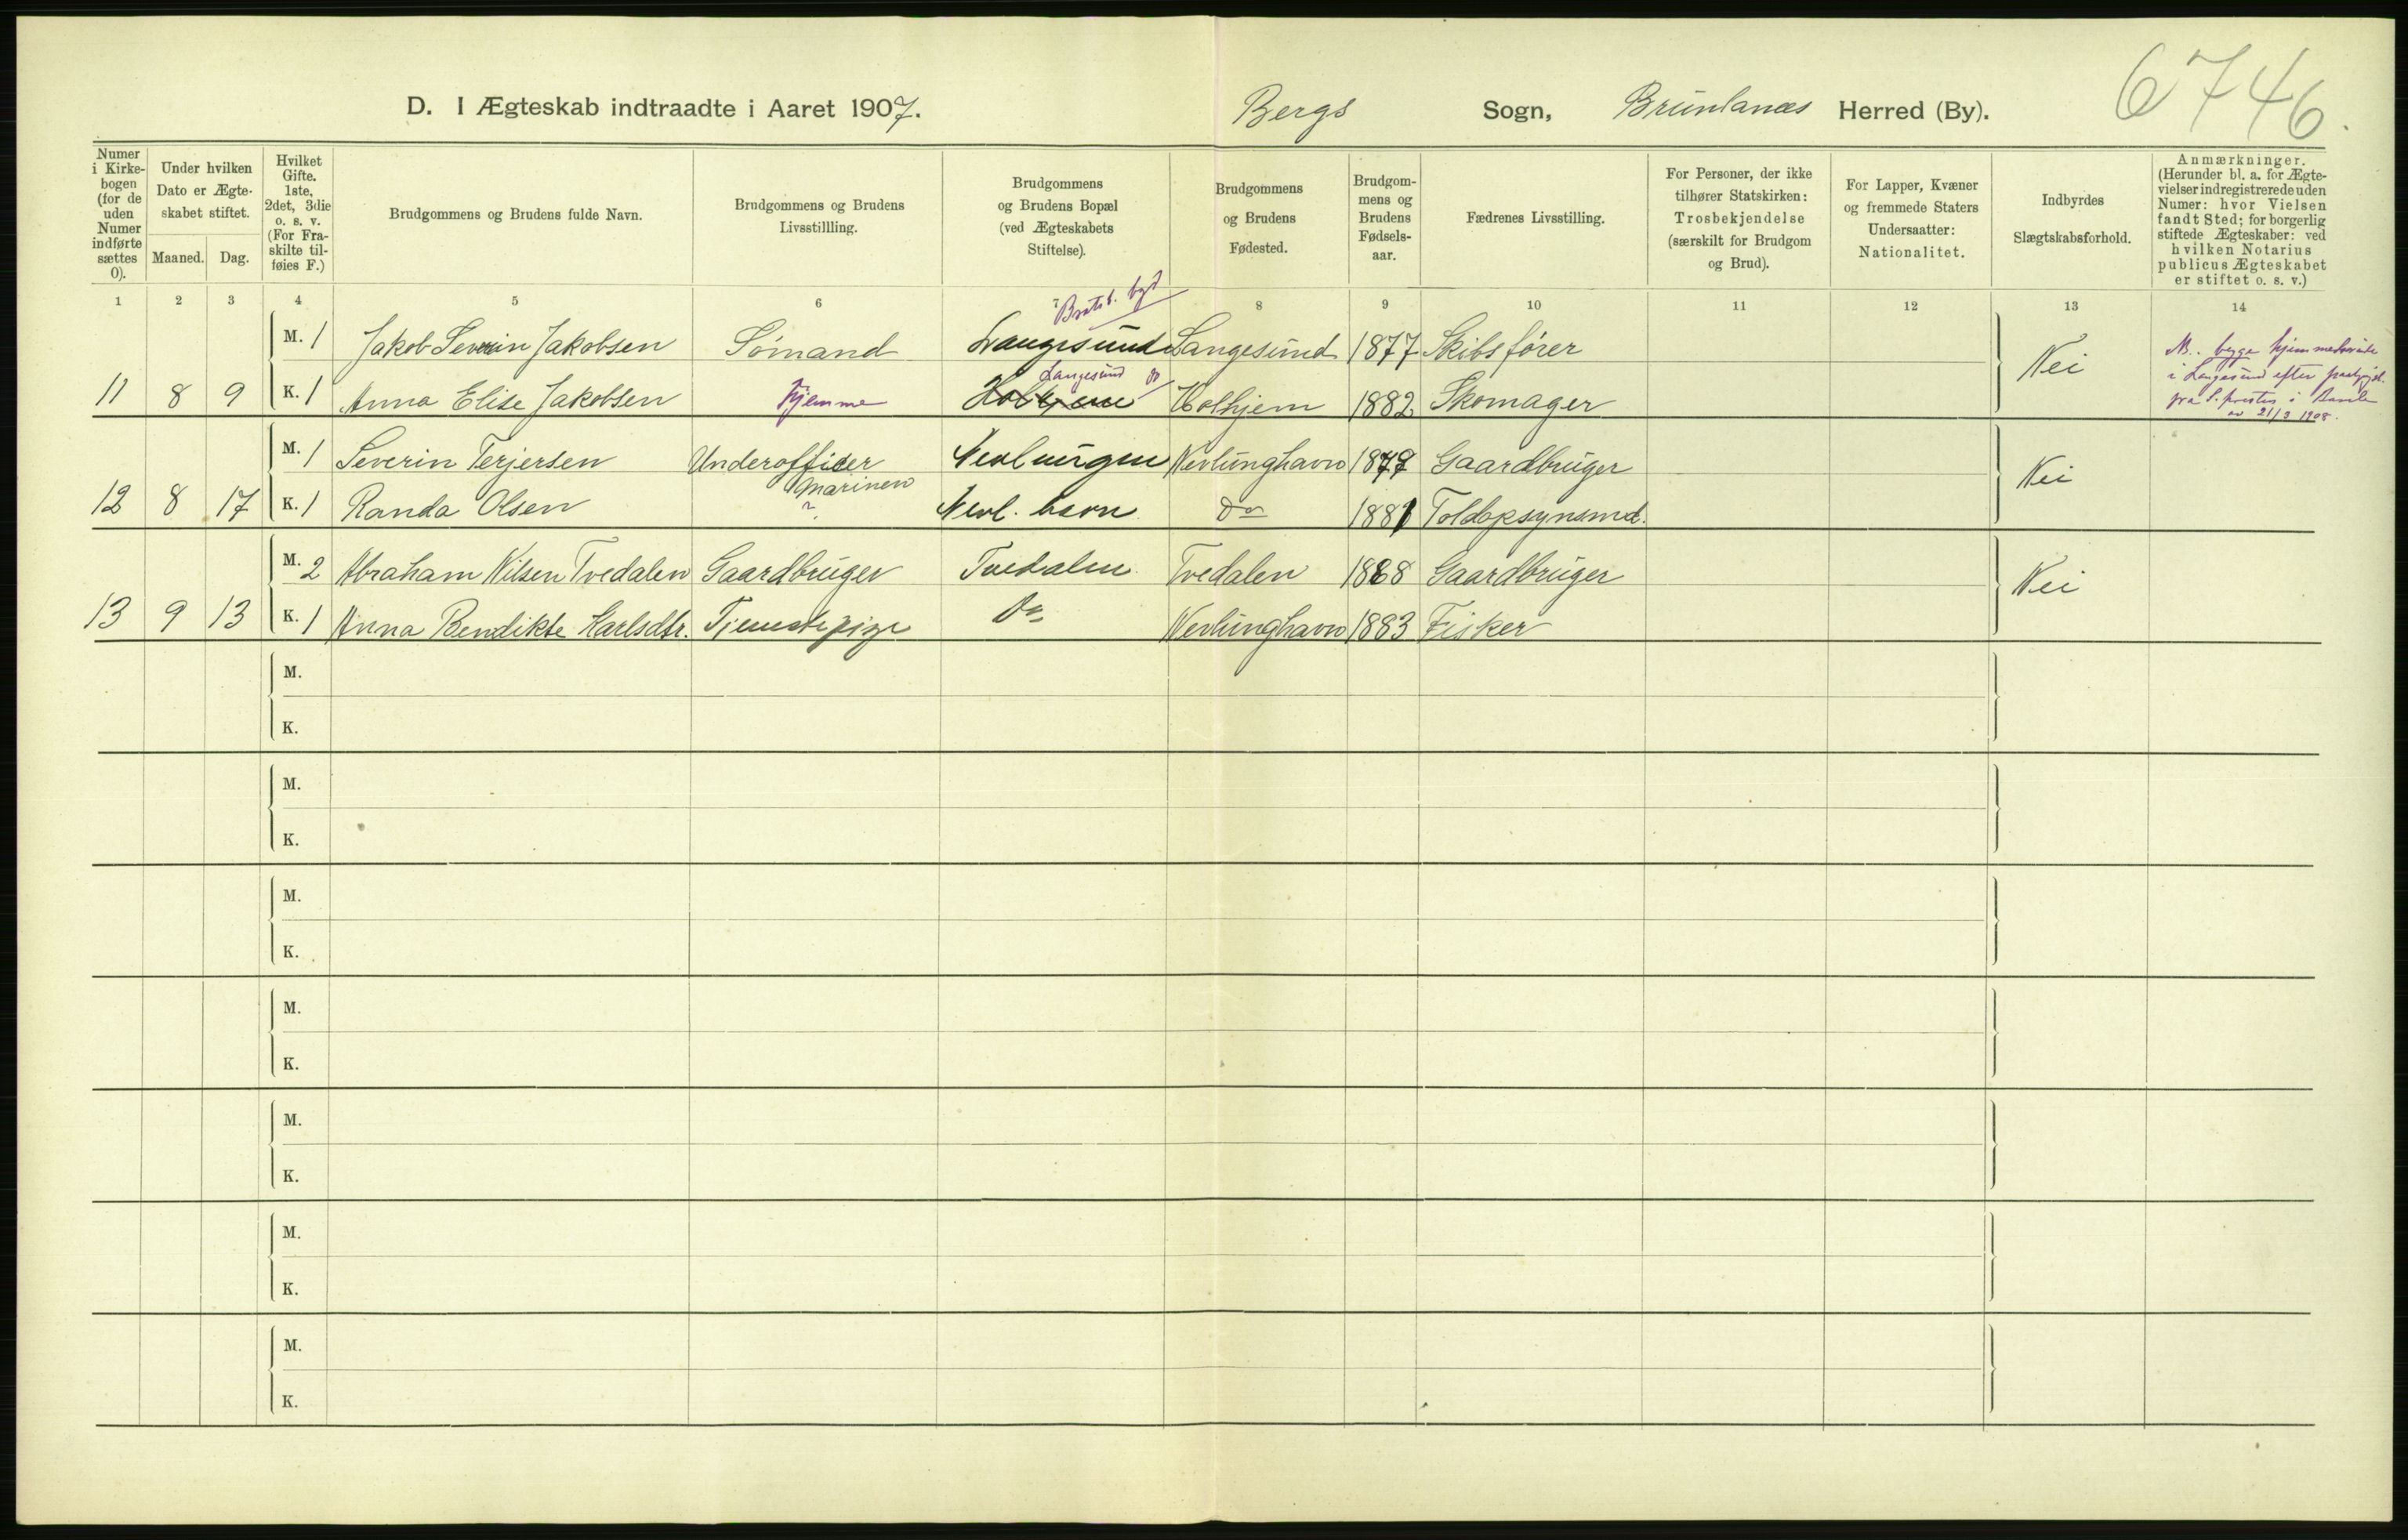 6746.
D. I Ægteskab indtraadte i Aaret 1907. Bergs Sogn, Brunlanæs Herred (By).
Numer i Kirkebogen (for de uden Numer indførte sættes 0).
Under hvilken Dato er Ægteskabet stiftet.
Maaned. Dag.
Hvilket Gifte. 1ste, 2det, 3die o. s. v. (For Fraskilte tilføies F.)
Brudgommens og Brudens fulde Navn.
Brudgommens og Brudens Livsstillling.
Brudgommens og Brudens Bopæl (ved Ægteskabets Stiftelse).
Brudgommens og Brudens Fødested.
Brudgommens og Brudens Fødselsaar.
Fædrenes Livsstilling.
For Personer, der ikke tilhører Statskirken: Trosbekjendelse (særskilt for Brudgom og Brud).
For Lapper, Kvæner og fremmede Staters Undersaatter: Nationalitet.
Indbyrdes Slægtskabsforhold.
Anmærkninger. (Herunder bl. a. for Ægtevielser indregistrerede uden Numer: hvor Vielsen fandt Sted; for borgerlig stiftede Ægteskaber: ved hvilken Notarius publicus Ægteskabet er stiftet o. s. v.)
1 2 3 4 5 6 7 8 9 10 11 12 13 14
M. 1 Jakob Severin Jakobsen Sømand Langesund Langesund 1877 Skibsfører Nei
11 8 9 K. 1 Anna Elise Jakobsen hjemme Langesund do Holhjem Holhjem 1882 Skomager
begge hjemmehørende
i Langesund efter
fra S. presten i
av 21/3 1908.
M. 1 Severin Terjersen Underofficer Nevlungen Nevlunghavn 1879 Gaardbruger Nei
marinen
12 8 17 K. 1 Randa Olsen ? Nevl. havn do 1881 Toldopsynsmd.
M. 2 Abraham Nilsen Tvedalen Gaardbruger Tvedalen Tvedalen 1868 Gaardbruger Nei
13 9 13 K. 1 Anna Bendikte Karlsdtr. Tjenestepige do Nevlunghavn 1883 Fisker
M.
K.
M.
K.
M.
K.
M.
K.
M.
K.
M.
K.
M.
K.